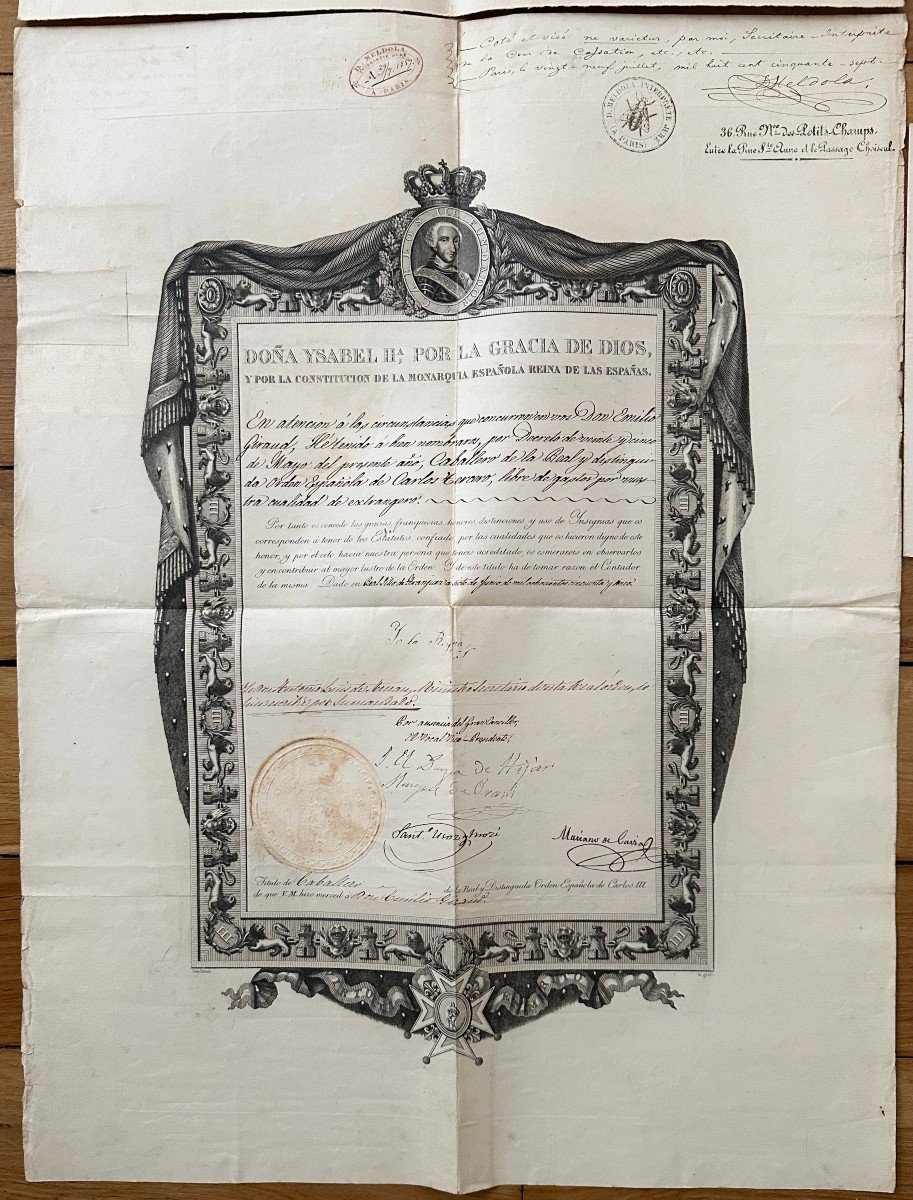 D. MELDOLA
29/7 1857
A PARIS.
Coté et visé ne varietur, par moi, Secrétaire-Interprète
la Cour de Cassation, etc, etc.
Paris, le vingt-neuf juillet, mil huit cent cinquante-sept.
D Meldola
D. MELDOLA, INTERPRÈTE JURÉ
A PARIS
36. Rue Nve Des Petits-Champs,
Entre la Rue Ste Anne et le Passage Choiseul.
DOÑA YSABEL IIA, POR LA GRACIA DE DIOS,
Y POR LA CONSTITUCION DE LA MONARQUIA ESPAÑOLA REINA DE LAS ESPAÑAS,
En atencion á las circunstancias que concurren en vos Don Emilio
Giraud, He tenido á bien nombraros, por Decreto de veinte y cinco
de Mayo del presente año, Caballero de la Real y distingui-
da Orden Española de Carlos Tercero, libre de gastos por vues-
tra cualidad de extrangero.
Por tanto os concedo las gracias, franquicias, honores, distinciones y uso de Insignias que os
corresponden á tenor de los Estatutos, confiado, por las cualidades que os hicieron digno de este
honor, y por el celo hacia nuestra persona que teneis acreditado, os esmerareis en observarlos
y en contribuir al mayor lustre de la Orden. Y de este título ha de tomar razon el Contador
de la misma. Dado en Real Sitio de Aranjuez á de Junio de mil ochocientos cincuenta y
Yo la Reyna
Yo Don Antonio Luis de Arnau, Ministro Secretario de esta Real Orden, lo
hice escribir por Su mandado.
Por ausencia del Gran Canciller,
El Vocal Vice-Presidente,
El Duque de Híjar
Marqués de Orani
Mariano de
Título de Caballero de la Real y Distinguida Orden Española de Carlos III
de que V. M. hizo merced á Don Emilio Giraud.
III
III
III
III
III
III